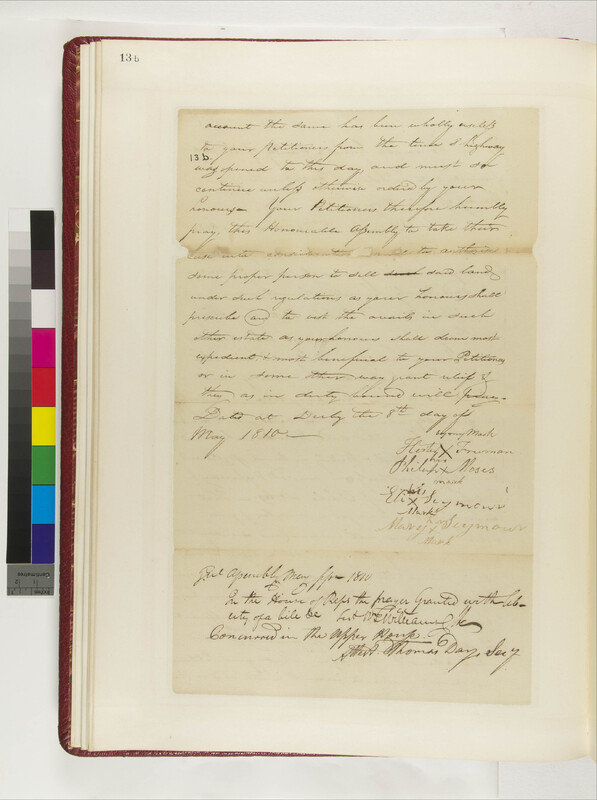 13 b
account the same has been wholly useless
to your Petitioners from the time s^d highway
13 b.
was opened to this day, and must so
continue unless otherwise ordered by your
honours Your Petitioners therefore humbly
pray, this Honourable Assembly to take their
case into consideration and to authorise
some proper person to sell said land,
under such regulations as your honours shall
prescribe and to vest the avails in such
other estate as your honours shall deem most
expedient & most beneficial to your Petitioners
or in some other way grant relief &
they as in duty bound will pray.
Dated at Derby the 8th day of
May 1810
Mark
X Freeman
Philip X Moses
mark
his
Eli X Seymour
Mark
Mary X Seymour
Mark
Assembly May 1810
In the House of Reps the prayer Granted with lib-
erty of a bill &c Williams Clk
Concurred in the upper House
Thomas Day, Secy